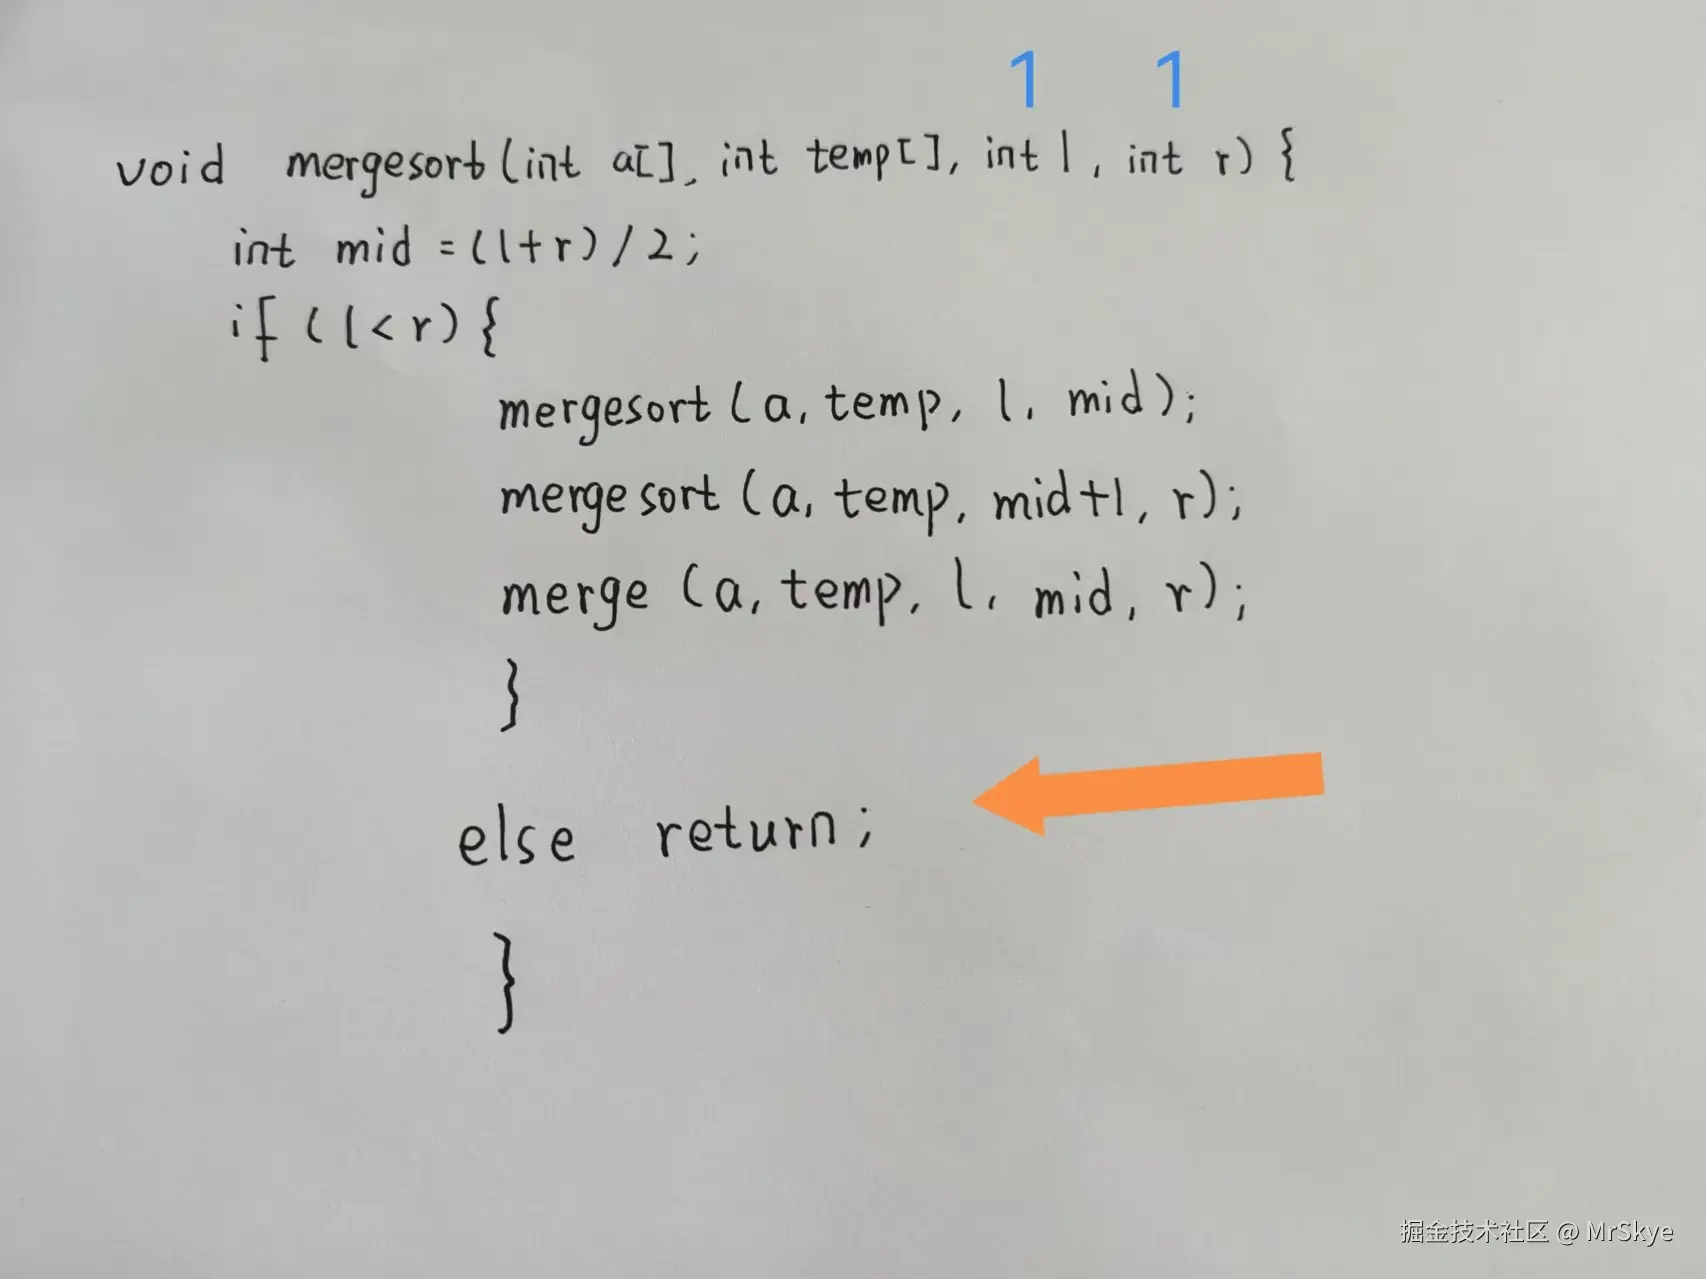 1 1
void mergesort(int a[], int temp[], int l, int r) {
int mid = (l+r)/2;
if (l<r) {
mergesort (a, temp, l, mid);
mergesort (a, temp, mid+1, r);
merge (a, temp, l, mid, r);
}
else return;
}
掘金技术社区 @ MrSkye